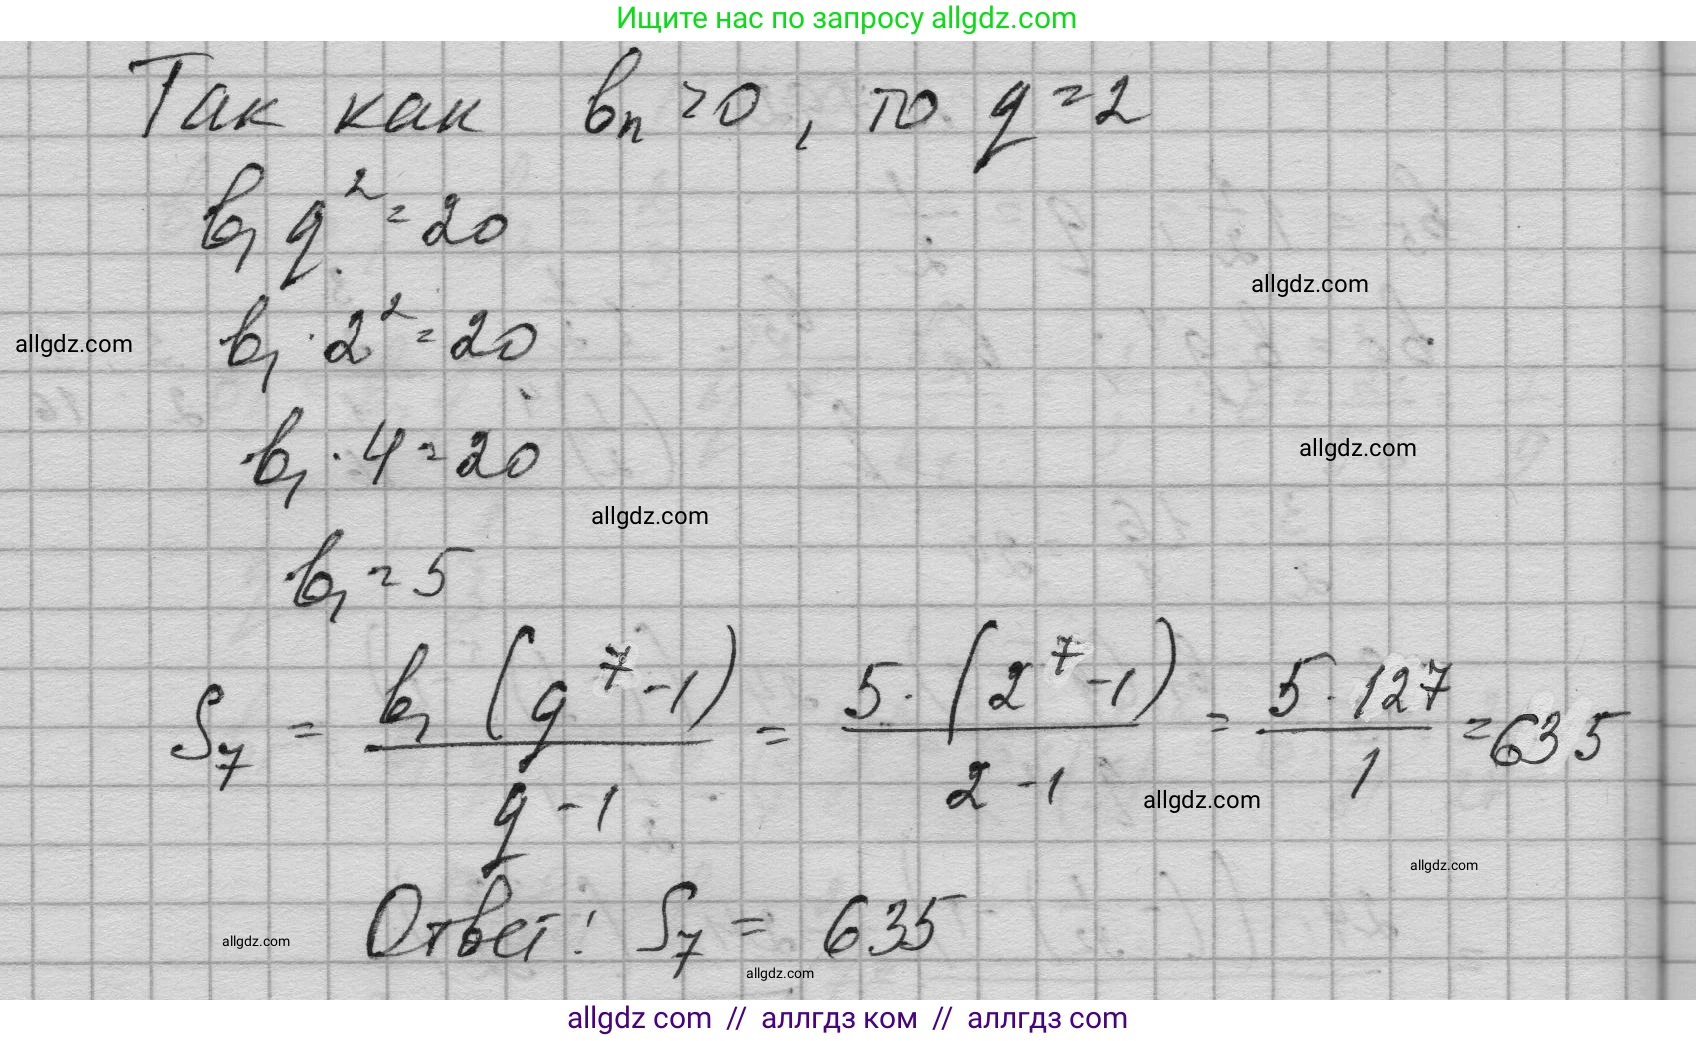 Ищите нас по запросу allgdz.com
Так как bₙ > 0, то q = 2
b₁ q² = 20
allgdz.com
b₁ · 2² = 20
allgdz.com
b₁ · 4 = 20
allgdz.com
allgdz.com
b₁ = 5
S₇ = b₁ (q⁷ - 1) / (q - 1) = 5 · (2⁷ - 1) / (2 - 1) = 5 · 127 / 1 = 635
allgdz.com
allgdz.com
Ответ: S₇ = 635
allgdz.com
allgdz.com
allgdz com // аллгдз ком // аллгдз com